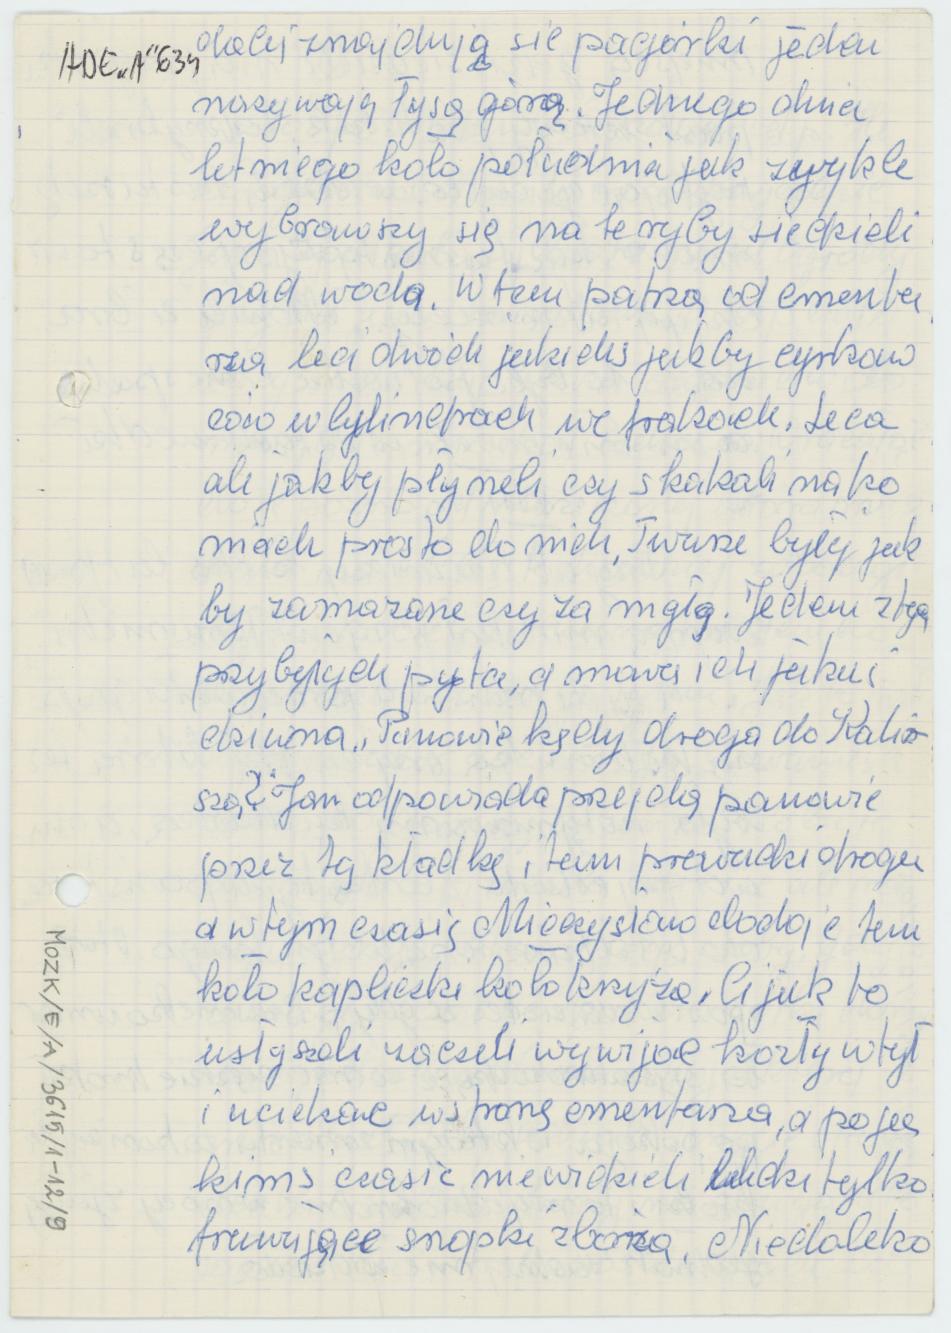 ADE„A"634
dalej znajdują się pagórki jeden
nazywają Łysą górą. Jednego dnia
letniego koło południa jak zwykle
wybrawszy się na te ryby siedzieli
nad wodą. Wtem patrzą od cmenta
rza leci dwóch jakichś jakby cyrkow
ców w cylindrach we frakach. Leca
ali jakby płyneli czy skakali na ko
niach prosto do nich, Twarze były jak
by zamazane czy za mgłą. Jeden z tych
przybyłych pyta, a mowa ich jakaś
dziwna „Panowie kędy droga do Kalisz
sza?" Jan odpowiada przejdą panowie
przez tą kładkę i tam prowadzi droga
a w tym czasie Mieczysław dodaje tam
koło kapliczki koło krzyża. Ci jak to
usłyszeli zaczeli wywijać kozły w tył
i uciekać w stronę cmentarza, a po ja
kimś czasie nie widzieli ludzi tylko
fruwające snopki zboża. Niedaleko
MOZK/E/A/3615/1-12/9